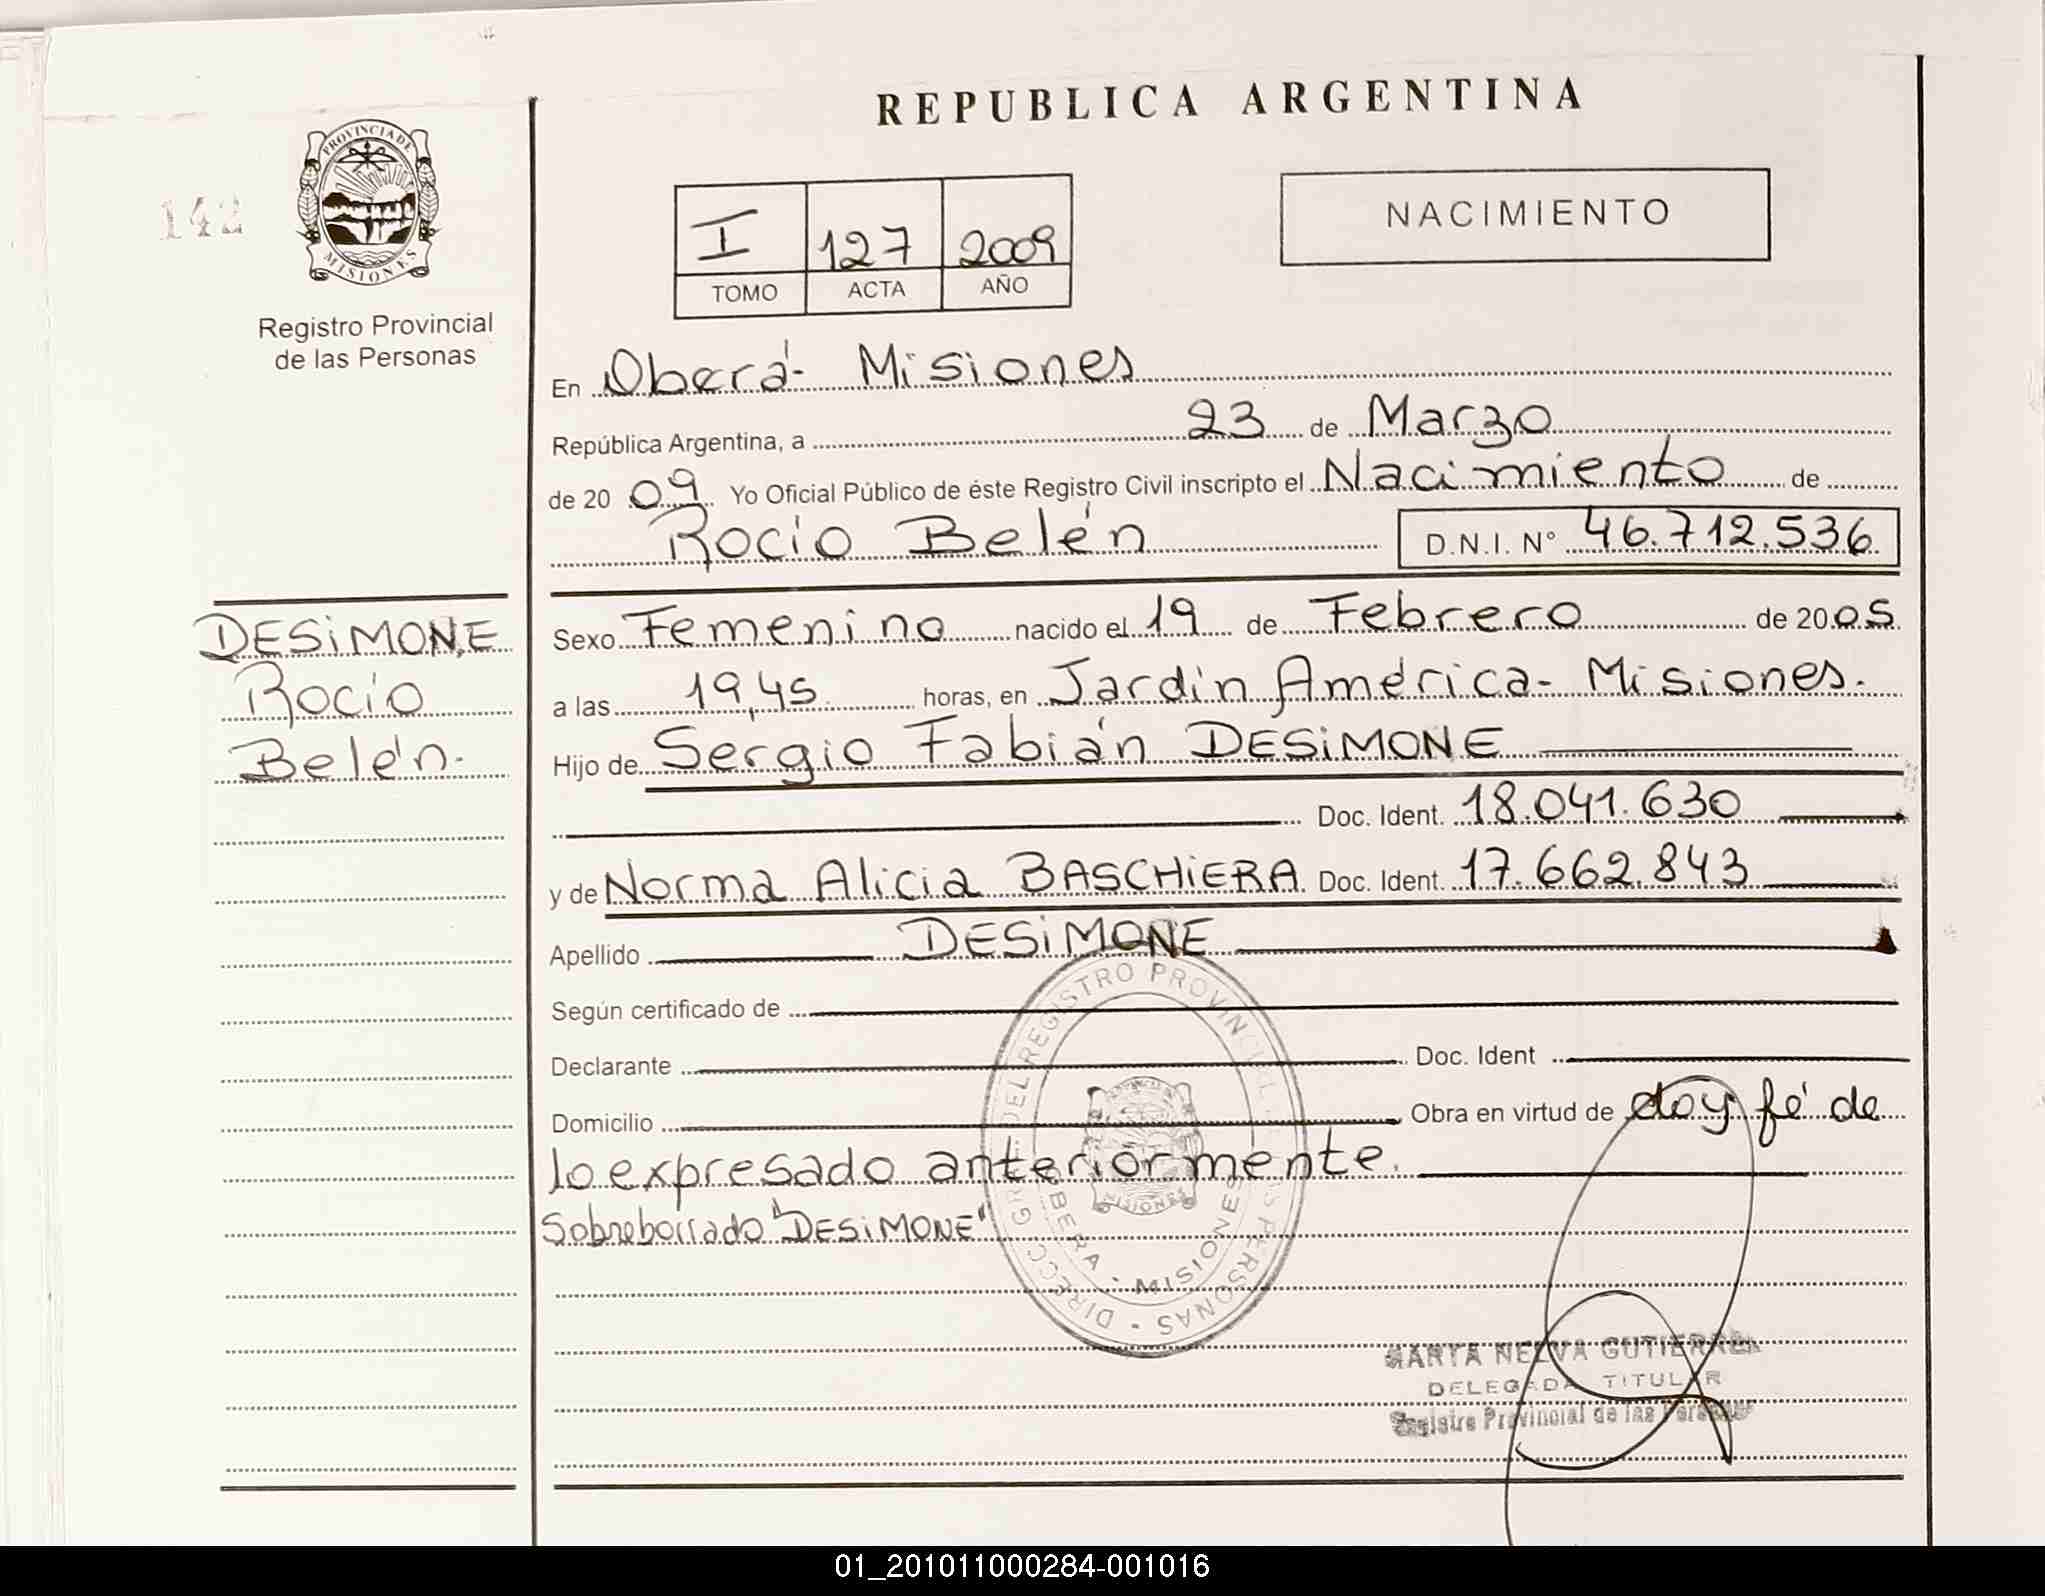 REPUBLICA ARGENTINA
142
PROVINCIA DE
MISIONES
Registro Provincial
de las Personas
I 127 2009
TOMO ACTA AÑO
NACIMIENTO
En Oberá- Misiones
República Argentina, a 23 de Marzo
de 20 09 Yo Oficial Público de éste Registro Civil inscripto el Nacimiento de
Rocío Belén D.N.I. N° 46.712.536
DESiMONE
Rocío
Belén.
Sexo Femenino nacido el 19 de Febrero de 2005
a las 19,45 horas, en Jardín América- Misiones.
Hijo de Sergio Fabián DESiMONE
Doc. Ident. 18.041.630
y de Norma Alicia BASCHiERA Doc. Ident. 17.662.843
Apellido DESiMONE
Según certificado de
Declarante Doc. Ident
Domicilio Obra en virtud de doy fé de
lo expresado anteriormente.
Sobreborrado "DESiMONE"
DIRECC GRAL DEL REGISTRO PROVINCIAL DE LAS PERSONAS
OBERA - MISIONES
MARTA NELVA GUTIERREZ
DELEGADA TITULAR
Registro Provincial de las Personas
01_201011000284-001016